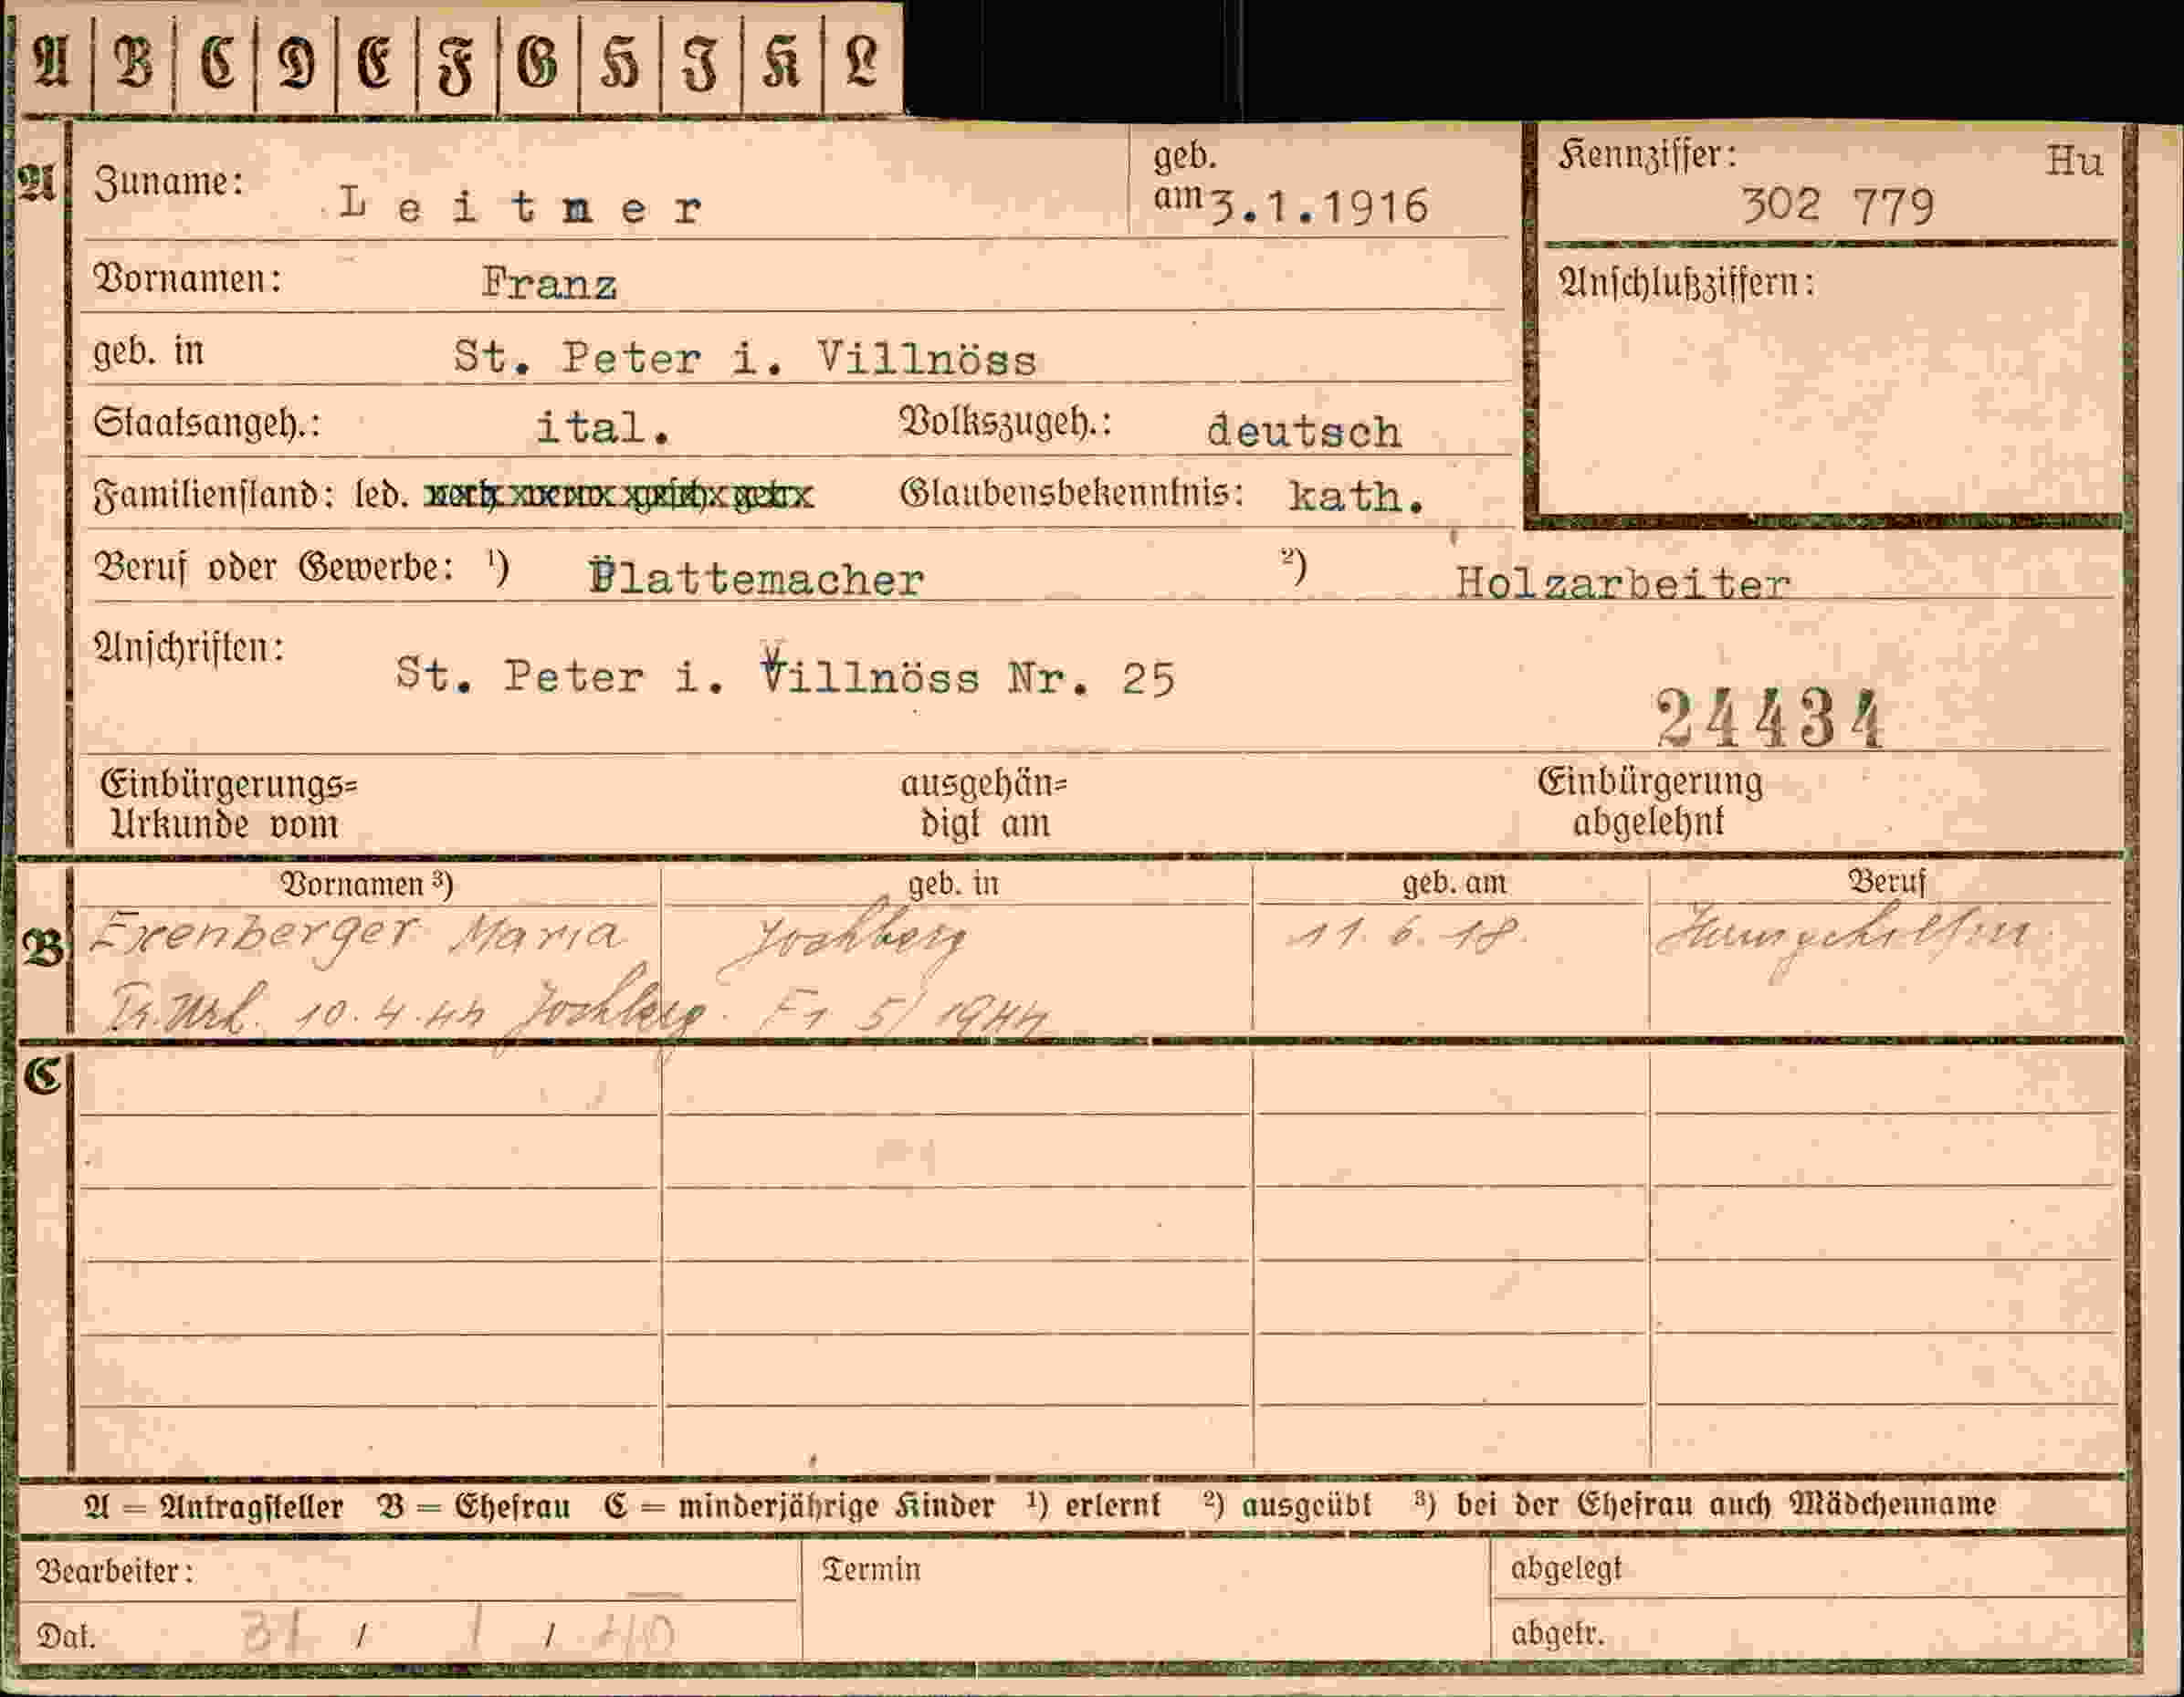 A B C D E F G H I K L
A Zuname: Leitner geb. am 3.1.1916 Kennziffer: 302 779 Hu
Vornamen: Franz Anschlußziffern:
geb. in St. Peter i. Villnöss
Staatsangeh.: ital. Volkszugeh.: deutsch
Familienstand: led. Glaubensbekenntnis: kath.
Beruf oder Gewerbe: ¹) Plattemacher ²) Holzarbeiter
Anschriften: St. Peter i. Villnöss Nr. 25
24434
Einbürgerungs= ausgehän= Einbürgerung
Urkunde vom digt am abgelehnt
Vornamen ³) geb. in geb. am Beruf
B Exenberger Maria Jochberg 11. 6. 18. Hausgehilfin
Tr. Urk. 10. 4. 44 Jochberg. 5/1944
C
A = Antragsteller B = Ehefrau C = minderjährige Kinder ¹) erlernt ²) ausgeübt ³) bei der Ehefrau auch Mädchenname
Bearbeiter: Termin abgelegt
Dat. 31 / 1 / 40 abgetr.